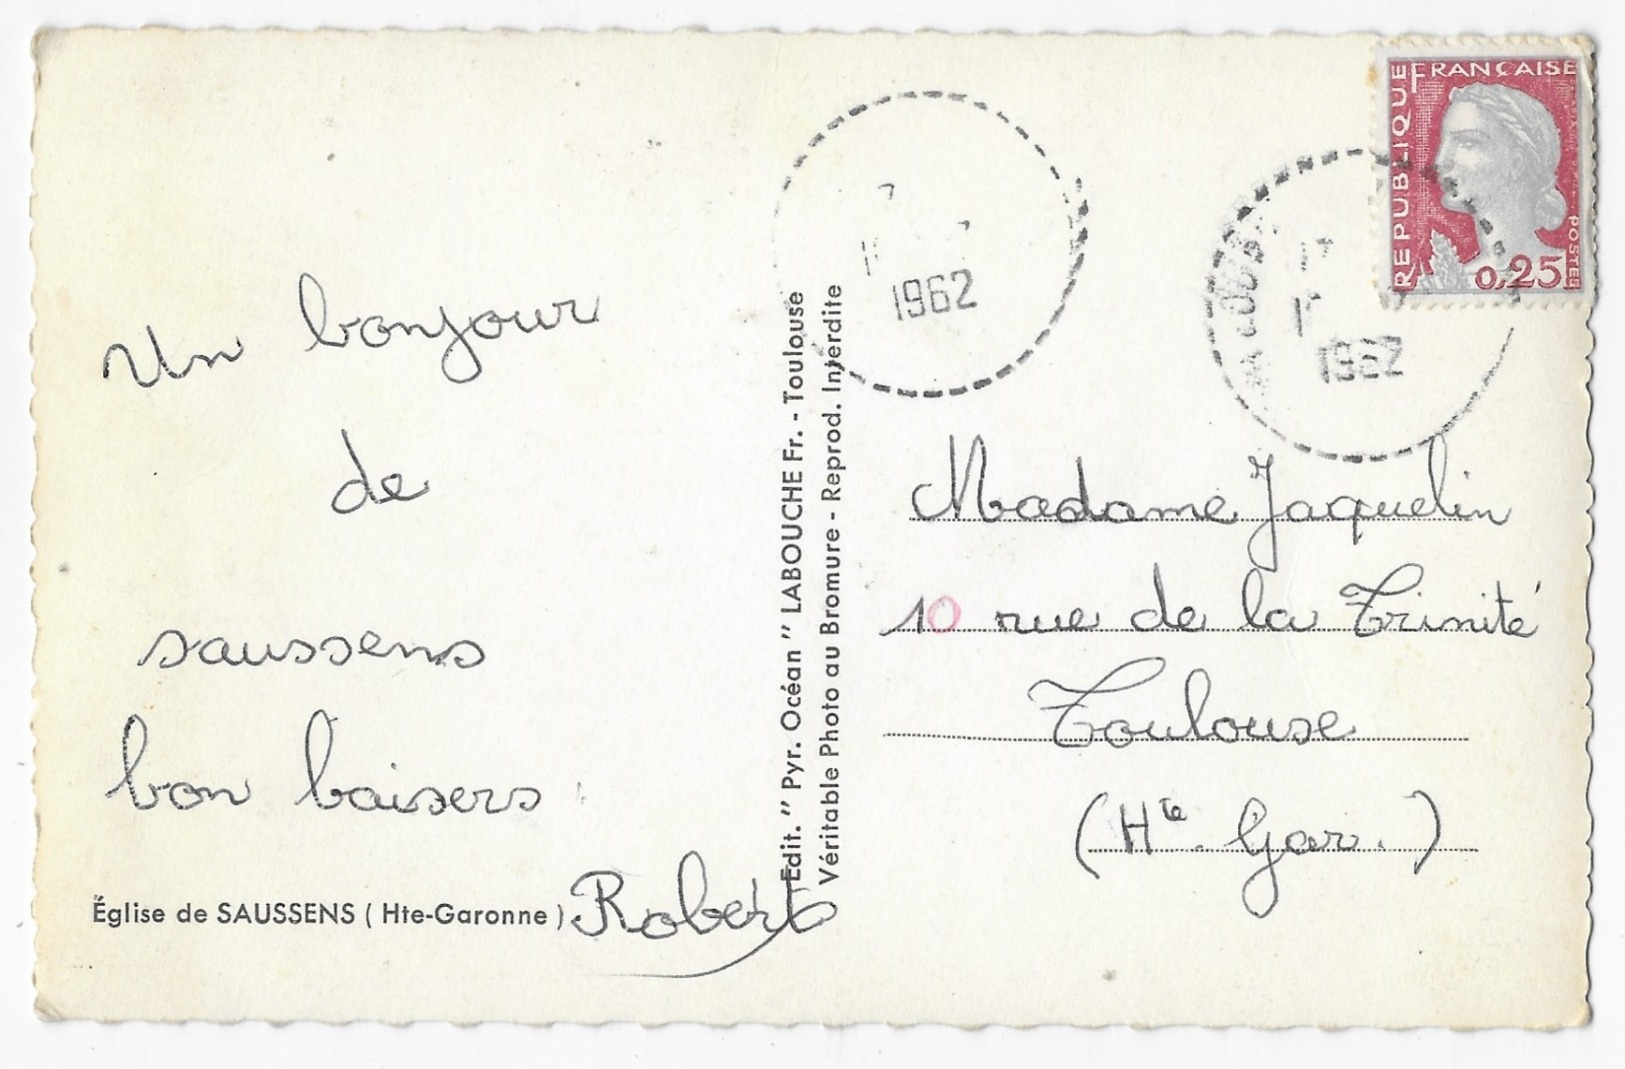 Un bonjour
de
saussens
bon baisers
Robert
Église de SAUSSENS ( Hte-Garonne )
Edit. " Pyr. Océan " LABOUCHE Fr. - Toulouse
Véritable Photo au Bromure - Reprod. Interdite
1962
17
1962
REPUBLIQUE FRANÇAISE
POSTES
0,25
Madame Jaquelin
10 rue de la Trinité
Toulouse
(Hte. Gar.)